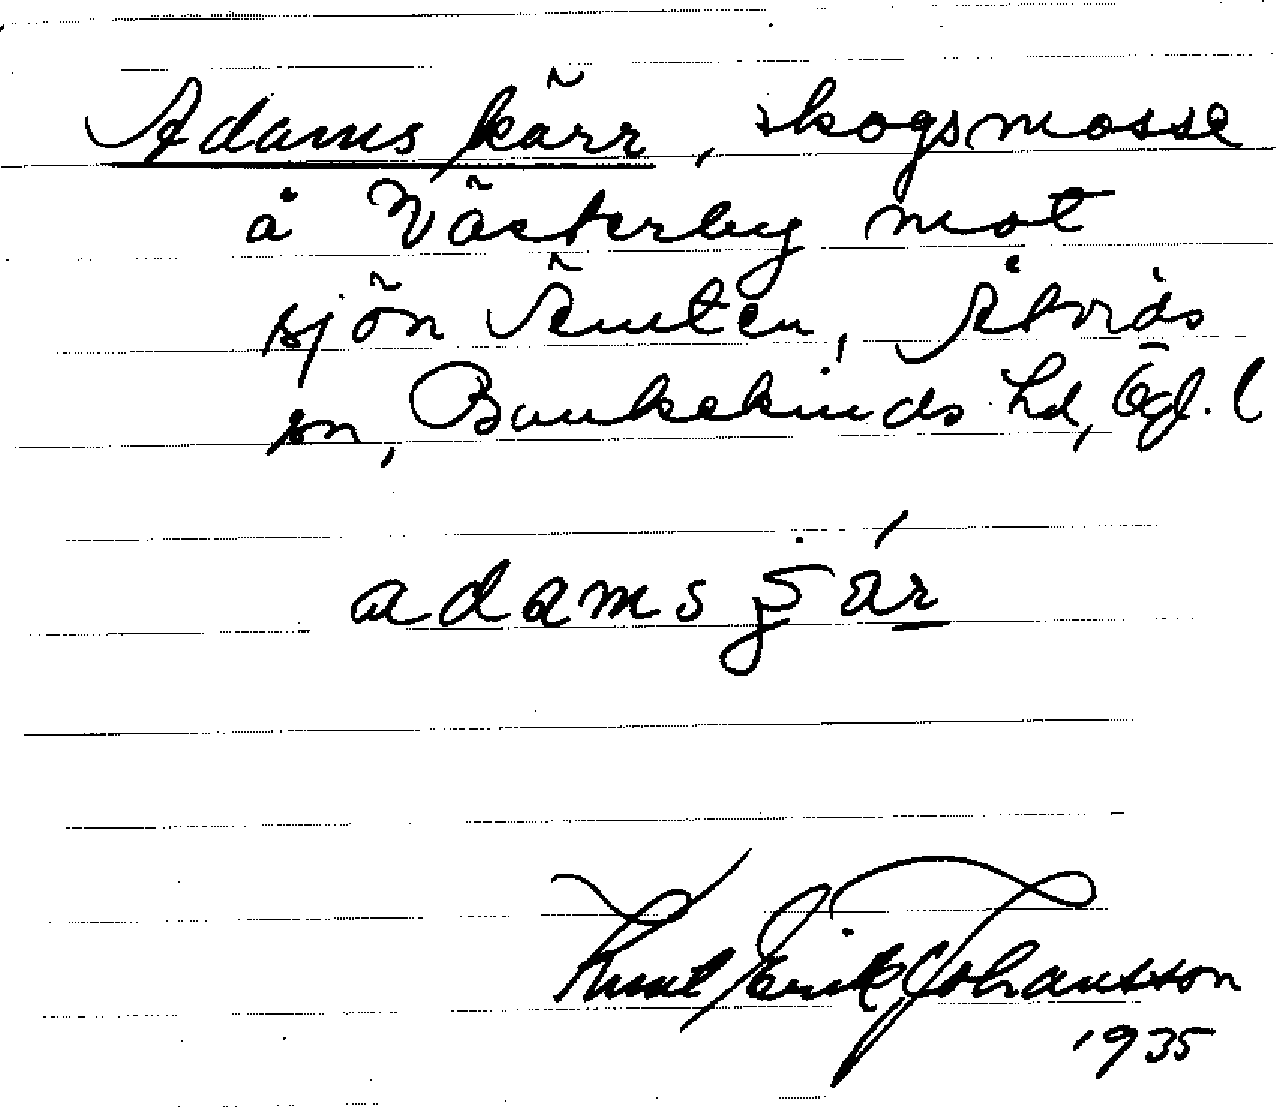 Adams kärr, skogsmosse
å Västerby mot
sjön Ämten, Åtvids
sn, Bankekinds hd, Ögl. l
adams
Knut Erik Johansson
1935